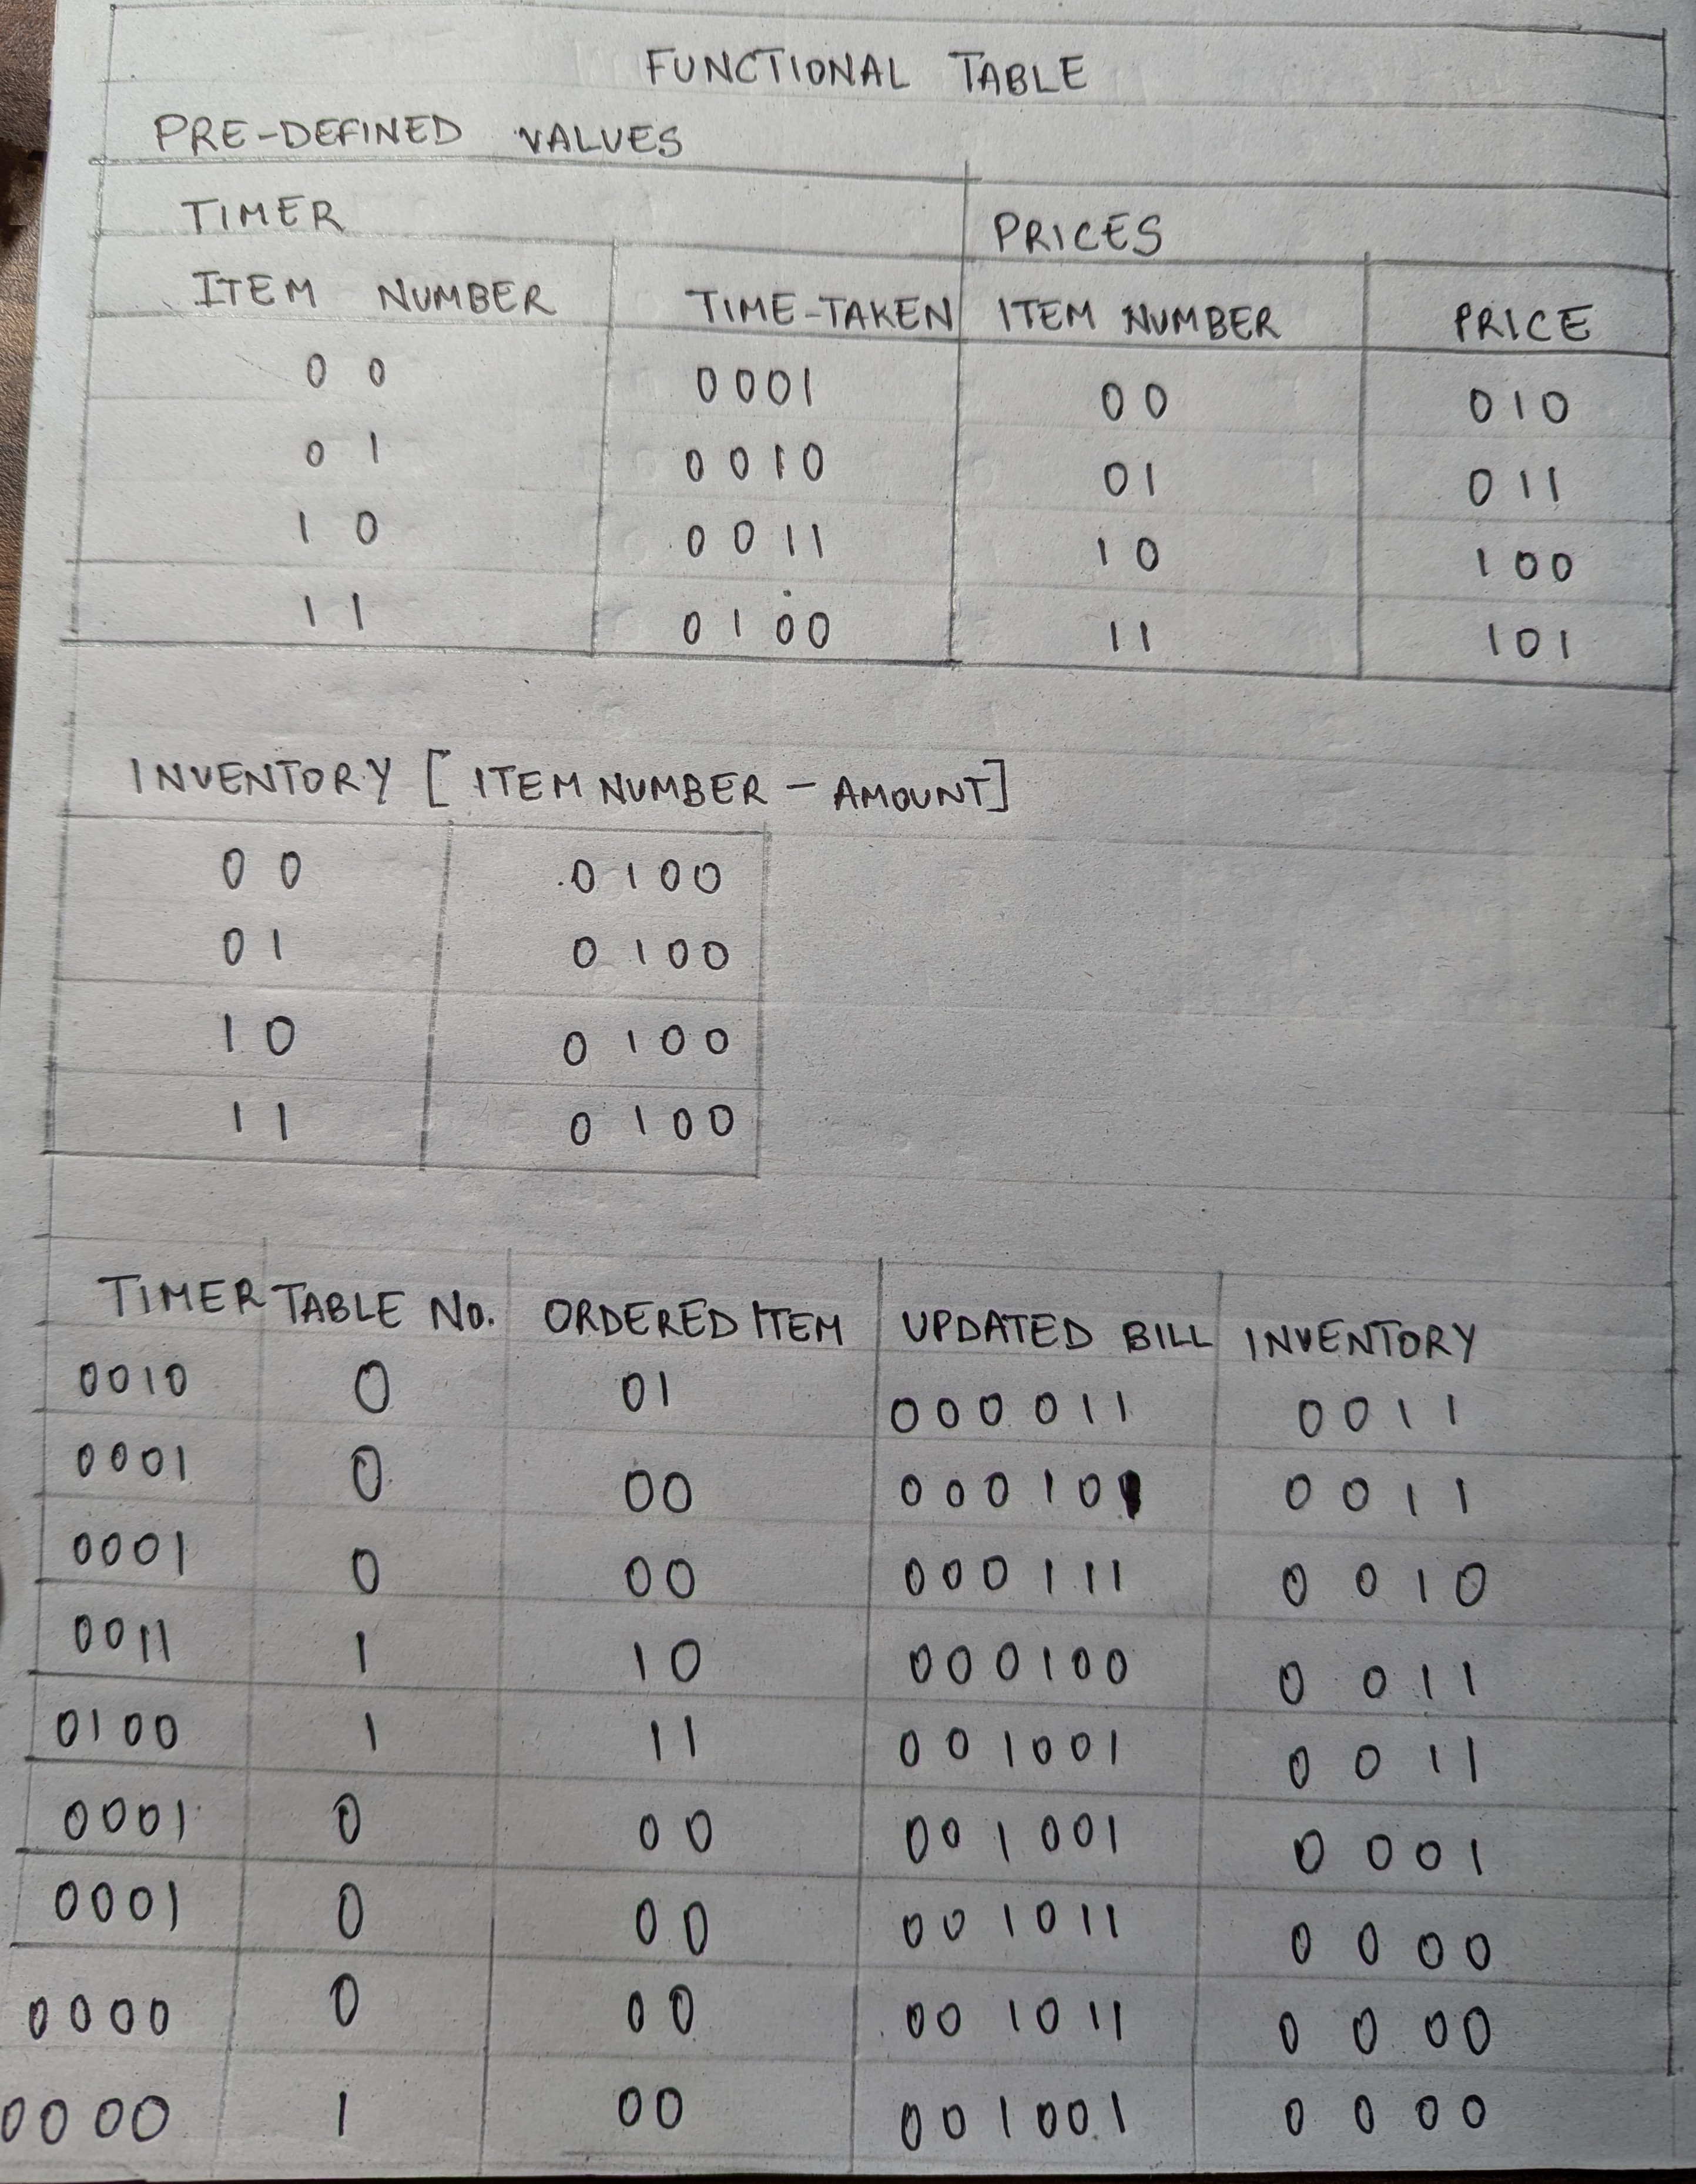 FUNCTIONAL TABLE
PRE-DEFINED VALUES
TIMER PRICES
ITEM NUMBER TIME-TAKEN ITEM NUMBER PRICE
0 0 0001 00 010
0 1 0010 01 011
1 0 0011 10 100
1 1 0100 11 101
INVENTORY [ITEM NUMBER - AMOUNT]
00 0100
01 0100
10 0100
11 0100
TIMER TABLE No. ORDERED ITEM UPDATED BILL INVENTORY
0010 0 01 000011 0011
0001 0 00 000101 0011
0001 0 00 000111 0010
0011 1 10 000100 0011
0100 1 11 001001 0011
0001 0 00 001001 0001
0001 0 00 001011 0000
0000 0 00 001011 0000
0000 1 00 001001 0000